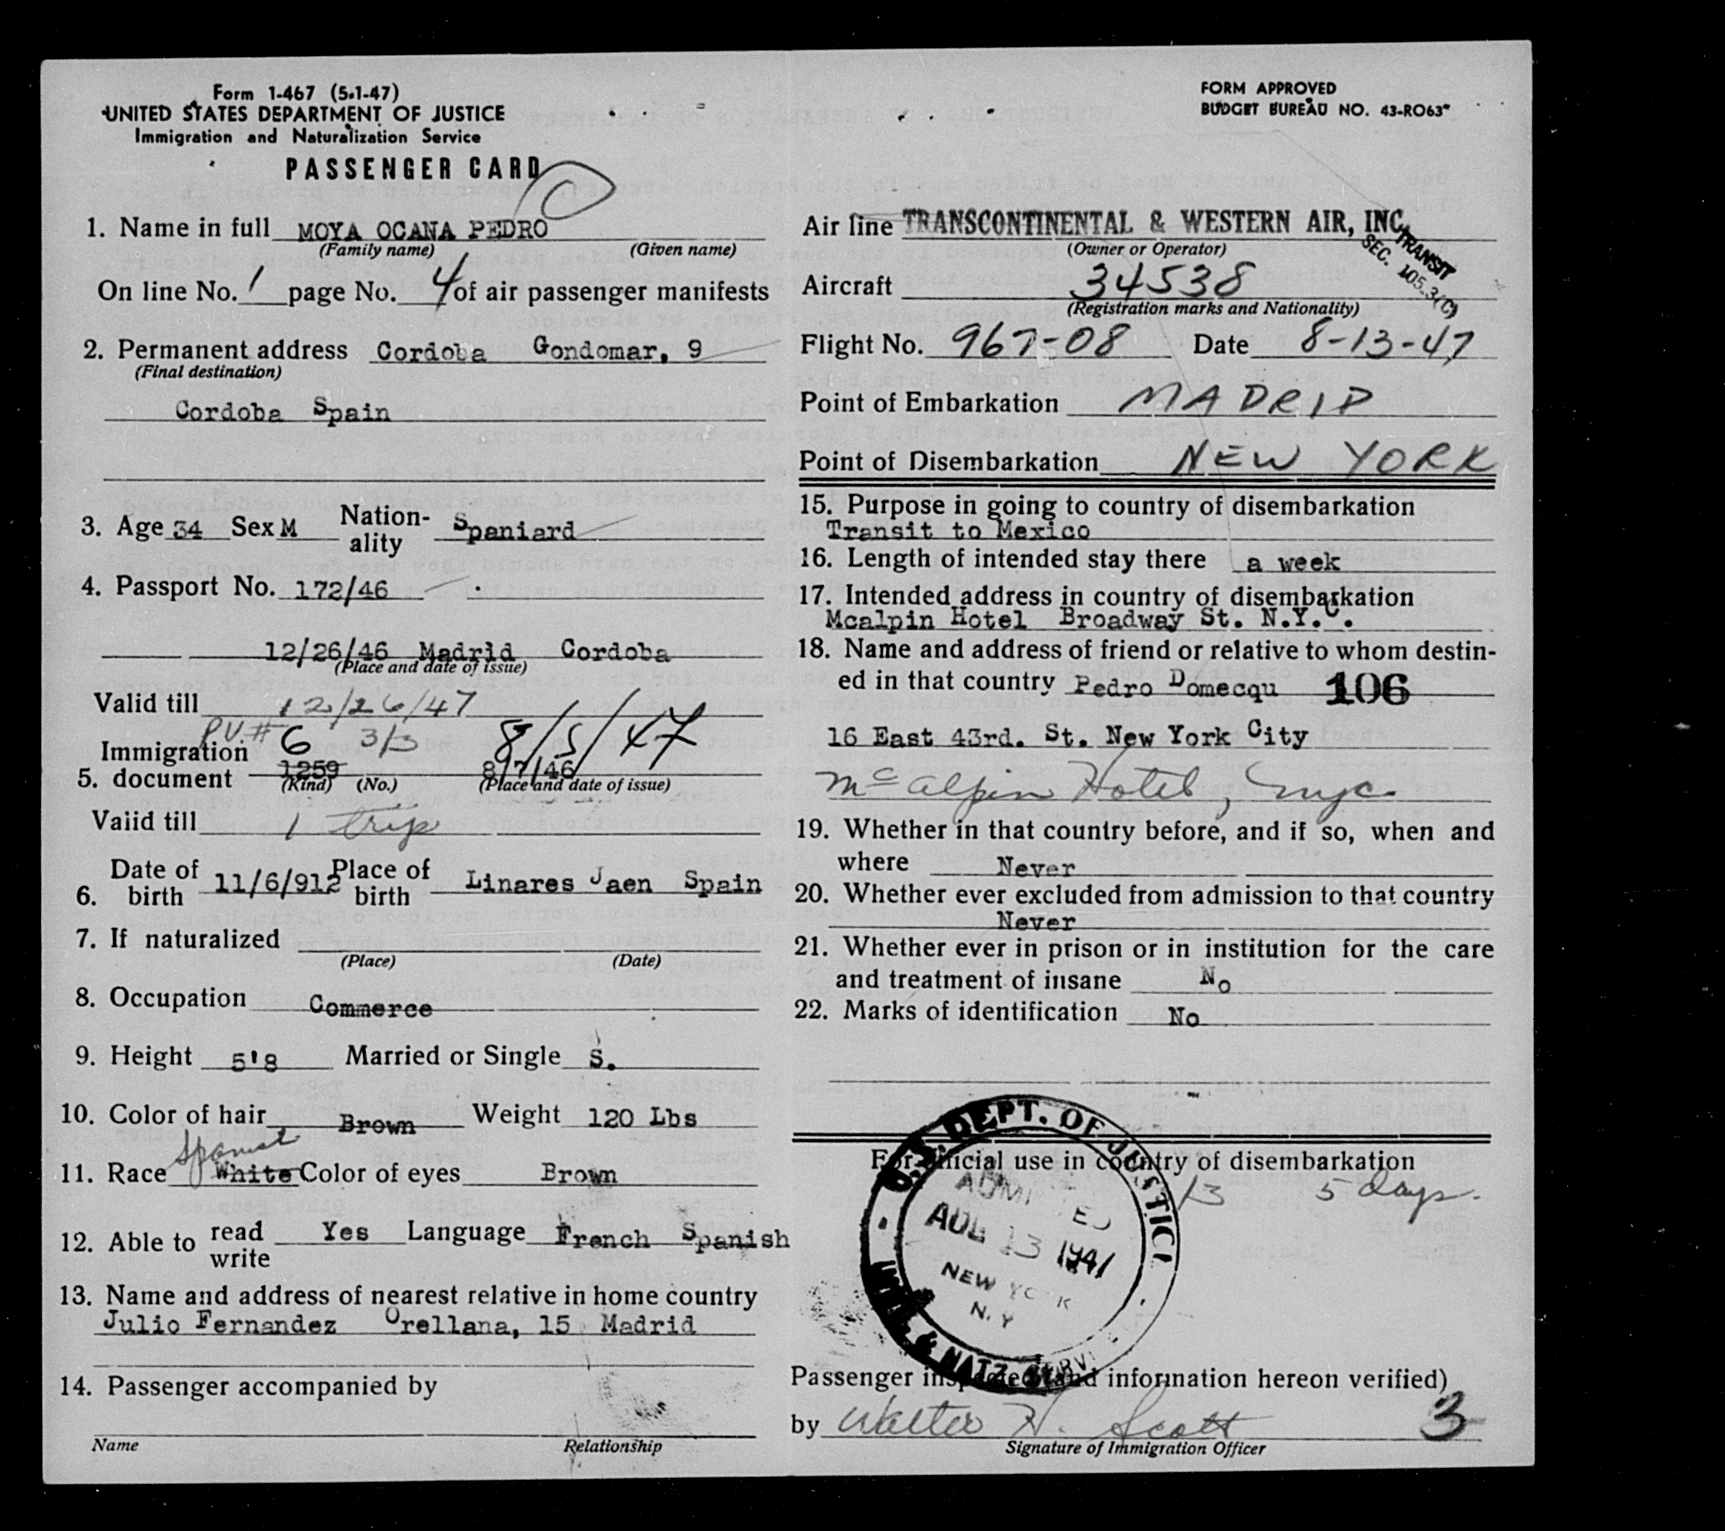 Form 1-467 (5-1-47)
UNITED STATES DEPARTMENT OF JUSTICE
Immigration and Naturalization Service
PASSENGER CARD
1. Name in full MOYA OCANA PEDRO
(Family name) (Given name)
On line No. 1 page No. 4 of air passenger manifests
2. Permanent address Cordoba Gondomar, 9
(Final destination)
Cordoba Spain
3. Age 34 Sex M Nation-ality Spaniard
4. Passport No. 172/46
12/26/46 Madrid Cordoba
(Place and date of issue)
Valid till 12/26/47
P.V. # 6 3/3 8/5/47
5. Immigration document 1259 8/7/46
(Kind) (No.) (Place and date of issue)
Valid till 1 trip
6. Date of birth 11/6/912 Place of birth Linares Jaen Spain
7. If naturalized
(Place) (Date)
8. Occupation Commerce
9. Height 5'8 Married or Single S.
10. Color of hair Brown Weight 120 Lbs
Spanish
11. Race White Color of eyes Brown
12. Able to read write Yes Language French Spanish
13. Name and address of nearest relative in home country
Julio Fernandez Orellana, 15 Madrid
14. Passenger accompanied by
Name Relationship
FORM APPROVED
BUDGET BUREAU NO. 43-RO63
Air line TRANSCONTINENTAL & WESTERN AIR, INC.
(Owner or Operator)
TRANSIT
SEC. 105.3(C)
Aircraft 34538
(Registration marks and Nationality)
Flight No. 967-08 Date 8-13-47
Point of Embarkation MADRID
Point of Disembarkation NEW YORK
15. Purpose in going to country of disembarkation
Transit to Mexico
16. Length of intended stay there a week
17. Intended address in country of disembarkation
Mcalpin Hotel Broadway St. N.Y.C.
18. Name and address of friend or relative to whom destin-
ed in that country Pedro Domecqu 106
16 East 43rd. St. New York City
McAlpin Hotel, nyc.
19. Whether in that country before, and if so, when and
where Never
20. Whether ever excluded from admission to that country
Never
21. Whether ever in prison or in institution for the care
and treatment of insane No
22. Marks of identification No
For official use in country of disembarkation
13 5 days.
U.S. DEPT. OF JUSTICE
ADMITTED
AUG 13 1947
NEW YORK
N.Y
IMM. & NATZ. SERV.
Passenger inspected (and information hereon verified)
by Walter H. Scott 3
Signature of Immigration Officer